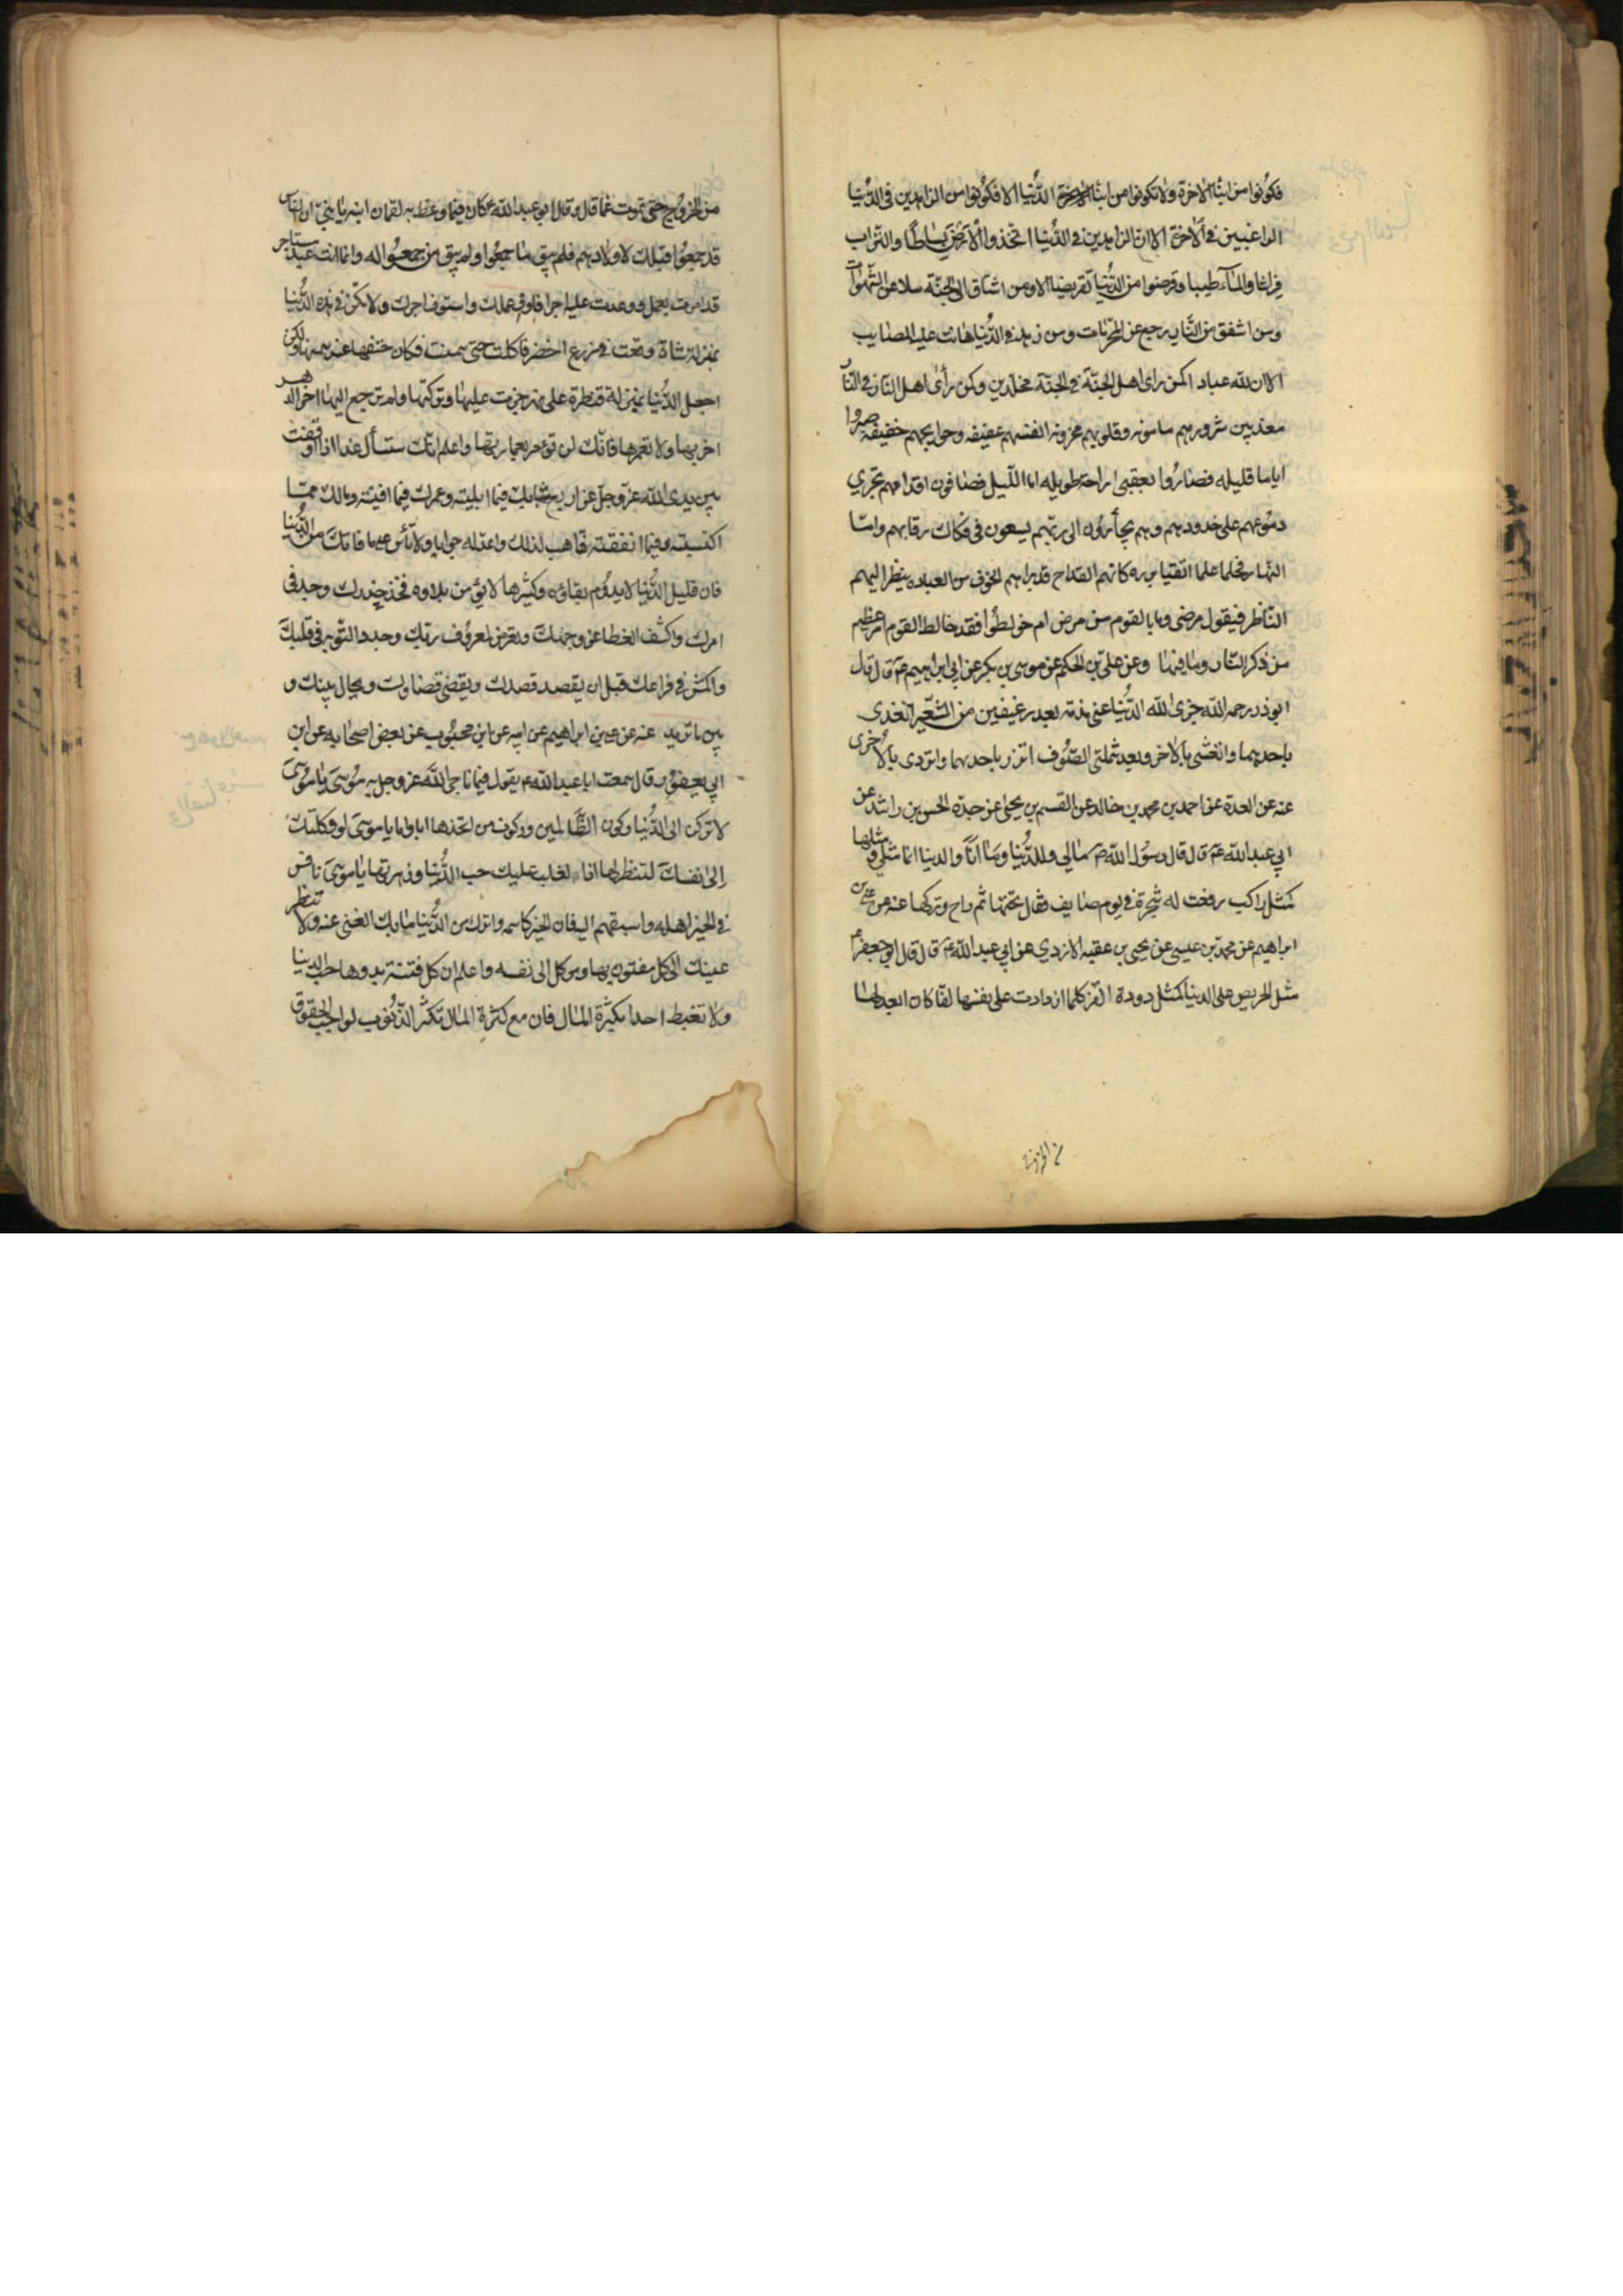 فكونوا من ابناء الاخرة ولا تكونوا من ابناء الدنيا الا فكونوا من الزاهدين فى الدنيا
الراغبين فى الاخرة الا ان الزاهدين فى الدنيا اتخذوا الارض بساطا والتراب
فراشا والماء طيبا وقرضوا من الدنيا تقريضا الا ومن اشتاق الى الجنة سلا عن الشهوات
ومن اشفق من النار رجع عن المحرمات ومن زهد فى الدنيا هانت عليه المصايب
الا ان لله عبادا كمن راى اهل الجنة فى الجنة مخلدين وكمن رأى اهل النار فى النار
معذبين شرورهم مامونه وقلوبهم محزونه انفسهم عفيفه وحوايجهم خفيفه صبروا
اياما قليله فصاروا بعقبى راحة طويله اما الليل فصافون اقدامهم تجري
دموعهم على خدودهم وهم يجأرون الى ربهم يسعون فى فكاك رقابهم واما
النهار فحلما علما اتقيا برره كانهم القداح قد براهم الخوف من العباده ينظر اليهم
الناظر فيقول مرضى وما بالقوم من مرض ام خولطوا فقد خالط القوم امر عظيم
من ذكر النار وما فيها وعن على بن الحكم عن موسى بن بكر عن ابي ابراهيم ع قال قال
ابوذر رحمه الله جزى الله الدنيا عنى مذمه بعد رغيفين من الشعير اتغدى
باحدهما واتغشى بالاخر وبعد شملتي الصوف اتزر باحديهما واتردى بالاخرى
عنه عن العدة عن احمد بن محمد بن خالد عن القسم بن يحيى عن جده الحسن بن راشد عن
ابي عبدالله ع قال قال رسول الله ص مالي وللدنيا وما انا والدنيا انما مثلي ومثلها
كمثل راكب رفعت له شجرة فى يوم صايف فقال تحتها ثم راح وتركها عنه عن على بن
ابراهيم عن محمد بن عيسى عن يحيى بن عقبه الازدي عن ابي عبد الله ع قال قال ابو جعفر ع
مثل الحريص على الدنيا كمثل دودة القز كلما ازدادت على نفسها لفا كان ابعد لها
من الخروج حتى تموت غما قال وقال ابو عبد الله ع كان فيما وعظ به لقمان ابنه يا بني ان الناس
قد جمعوا قبلك لاولادهم فلم يبق ما جمعوا ولم يبق من جمعوا له وانما انت عبد مستاجر
قد امرت بعمل ووعدت عليه اجرا فاوف عملك واستوف اجرك ولا تكن فى هذه الدنيا
بمنزلة شاة وقعت فى زرع اخضر فاكلت حتى سمنت فكان حتفها عند سمنها ولكن
اجعل الدنيا بمنزلة قنطرة على نهر جزت عليها وتركتها ولم ترجع اليها اخر الدهر
اخربها ولا تعمرها فانك لن تؤمر بعمارتها واعلم انك ستسأل غدا اذا وقفت
بين يدى الله عز وجل عن اربع شبابك فيما ابليته وعمرك فيما افنيته ومالك مما
اكتسبته وفيما انفقته فتاهب لذلك واعد له جوابا ولا تأس على ما فاتك من الدنيا
فان قليل الدنيا لا يدوم بقاؤه وكثيرها لا يؤمن بلاوه فخذ حذرك وجد فى
امرك واكشف الغطا عن وجهك وتعرض لمعروف ربك وجدد التوبه فى قلبك
واكمش فى فراغك قبل ان يقصد قصدك ويقضى قضاوك ويحال بينك و
بين ما تريد عنه عن على بن ابراهيم عن ابيه عن ابن محبوب عن بعض اصحابه عن ابن
ابي يعفور قال سمعت ابا عبد الله ع يقول فيما ناجى الله عز وجل به موسى يا موسى
لا تركن الى الدنيا ركون الظالمين وركون من اتخذها ابا واما يا موسى لو وكلتك
الى نفسك لتنظر لها اذا لغلب عليك حب الدنيا وزهرتها يا موسى نافس
فى الخير اهله واسبقهم اليه فان الخير كاسمه واترك من الدنيا ما بك الغنى عنه ولا تنظر
عينك الى كل مفتون بها وموكل الى نفسه واعلم ان كل فتنة بدوها حب الدنيا
ولا تغبط احدا بكثرة المال فان مع كثرة المال تكثر الذنوب لواجب الحقوق